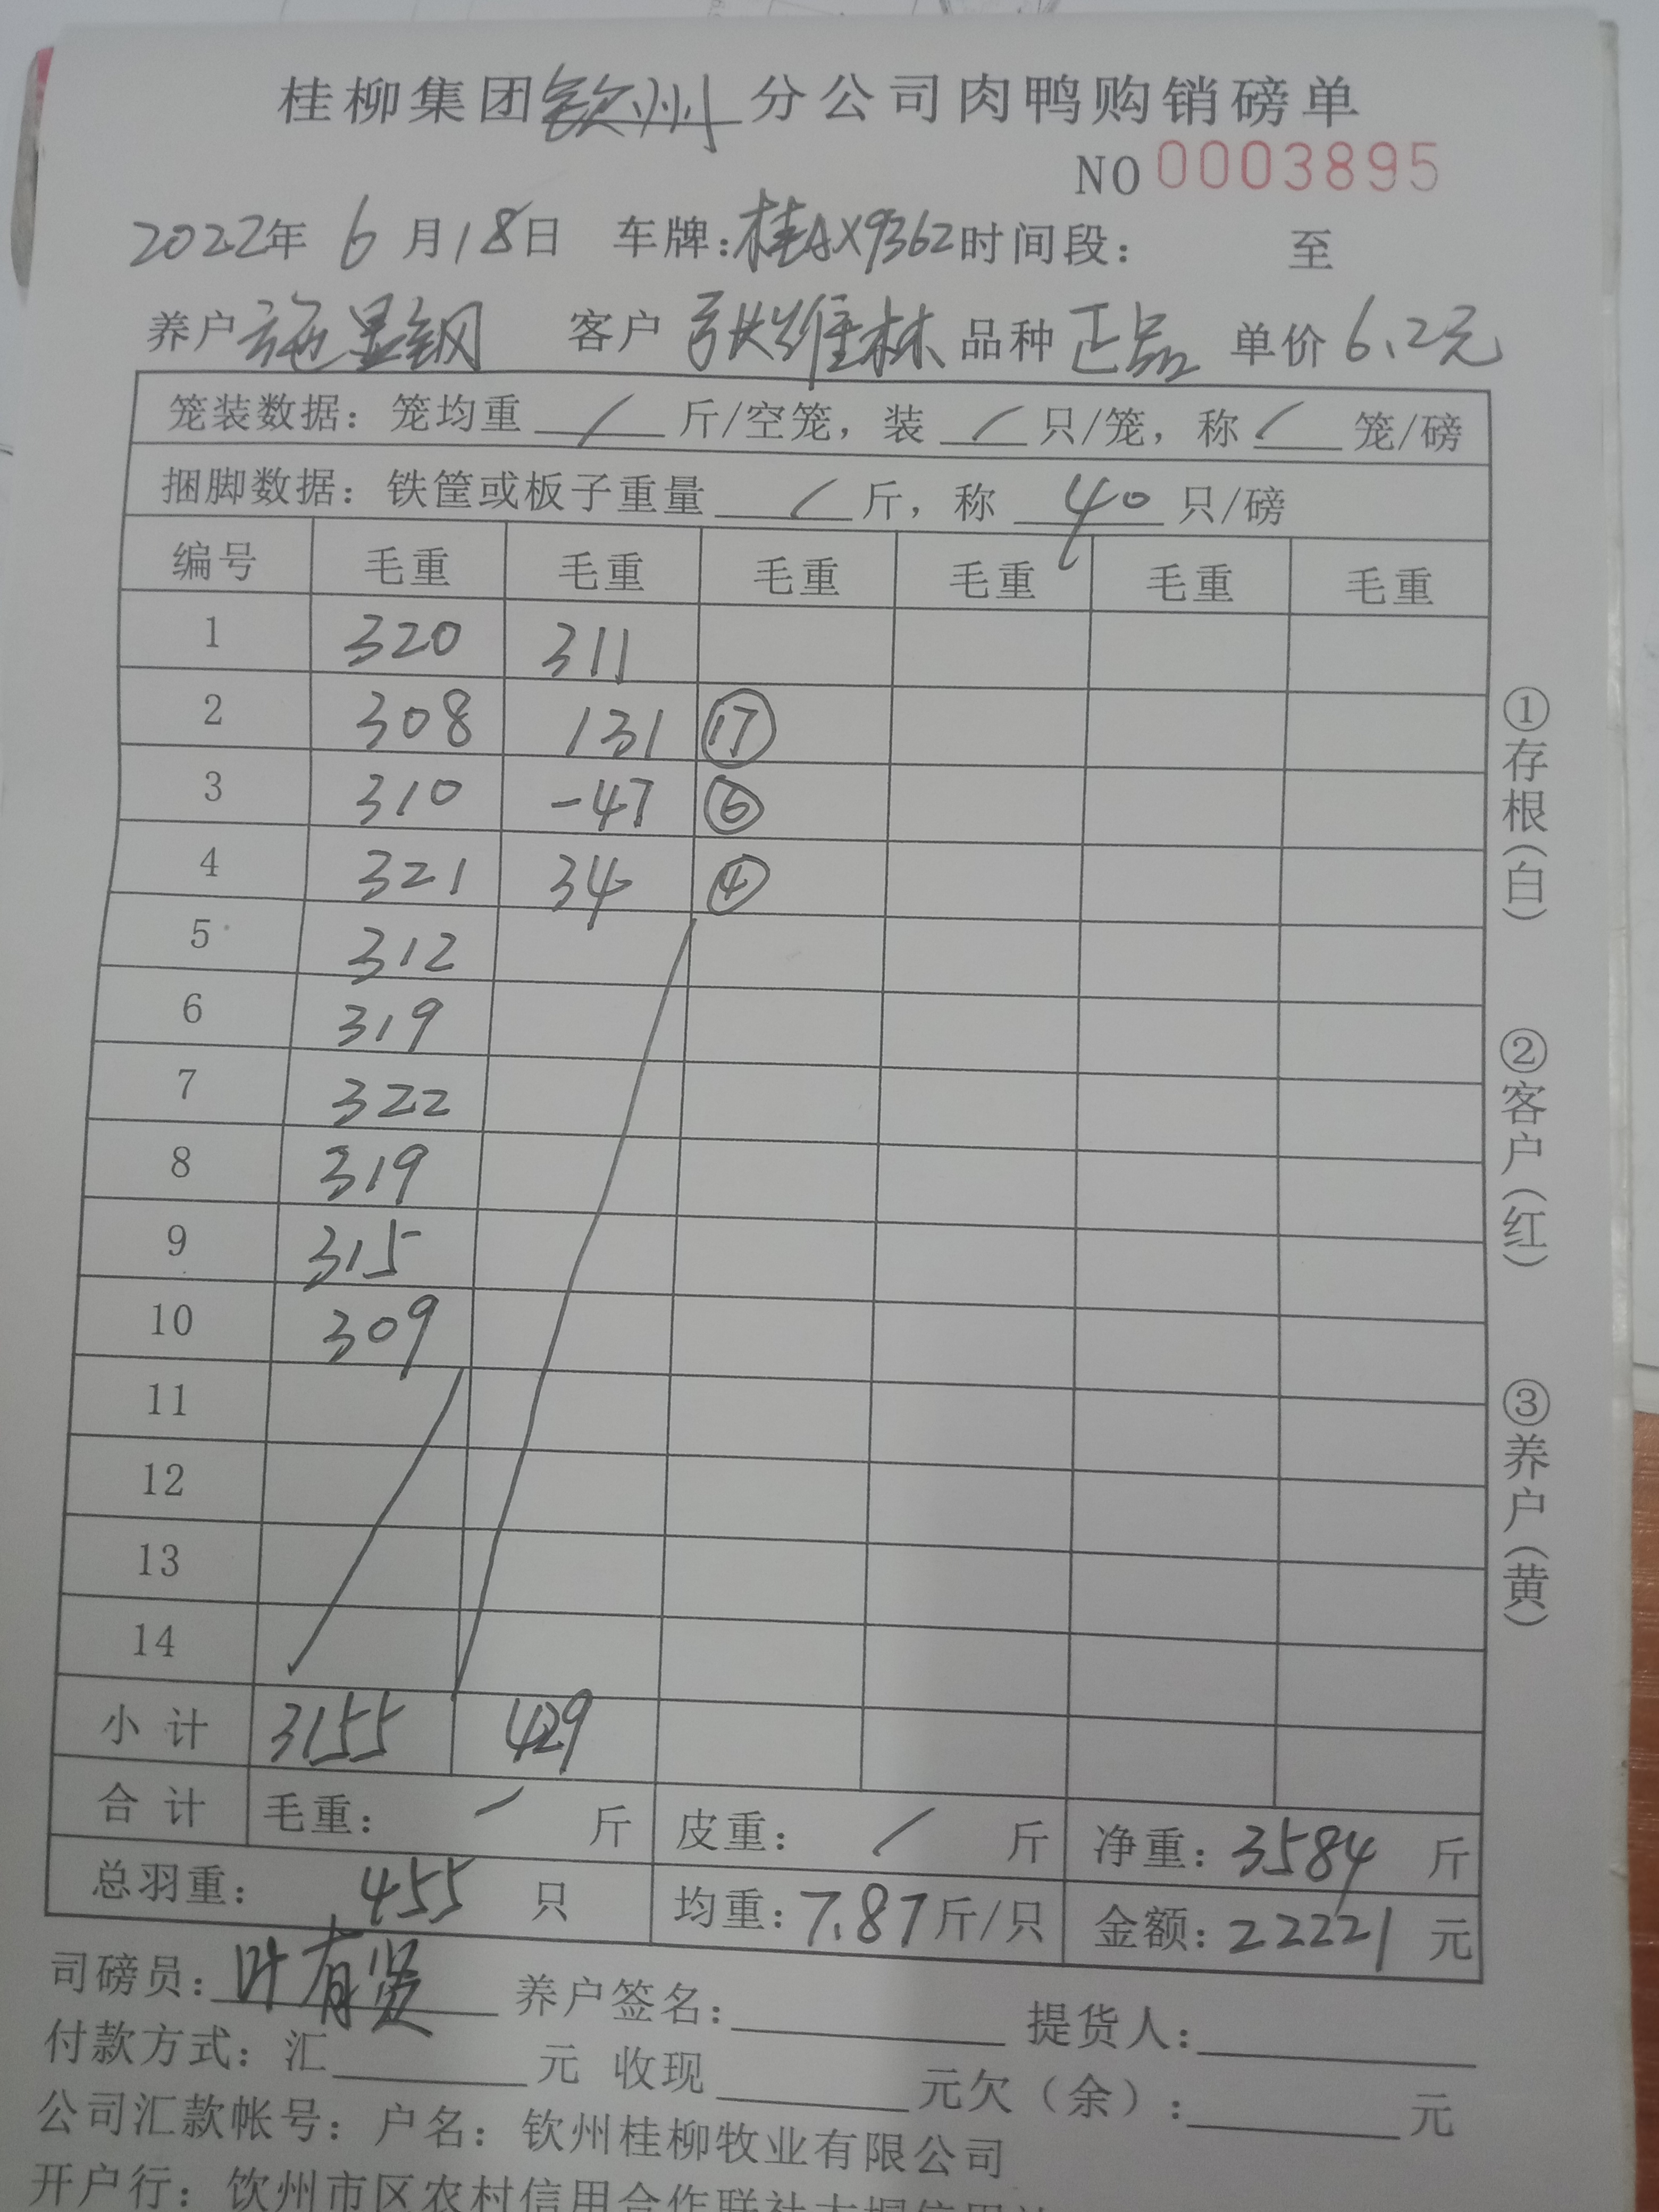 桂柳集团钦州分公司肉鸭购销磅单
NO 0003895
2022年 6 月 18 日 车牌:桂AX9362 时间段: 至
养户 施显钢 客户 张维林 品种 正品 单价 6.2元
笼装数据: 笼均重 / 斤/空笼, 装 / 只/笼, 称 / 笼/磅
捆脚数据: 铁筐或板子重量 / 斤, 称 40 只/磅
编号 毛重 毛重 毛重 毛重 毛重 毛重
1 320 311
2 308 131 ⑰
3 310 -47 ⑥
4 321 34 ④
5 312
6 319
7 322
8 319
9 315
10 309
11
12
13
14
小计 3155 429
合计 毛重: / 斤 皮重: / 斤 净重: 3584 斤
总羽重: 455 只 均重: 7.87 斤/只 金额: 22221 元
司磅员: 叶有贤 养户签名: 提货人:
付款方式: 汇 元 收现 元欠(余): 元
公司汇款帐号: 户名: 钦州桂柳牧业有限公司
开户行: 钦州市区农村信用合作联社大垌信用社
①存根(白)
②客户(红)
③养户(黄)